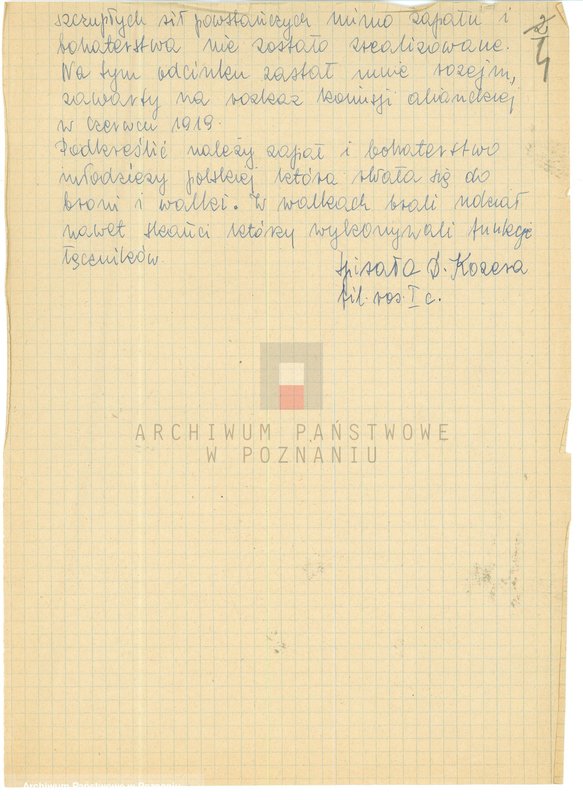 szczupłych sił powstańczych mimo zapału i
bohaterstwa nie zostało zrealizowane.
Na tym odcinku zastał mnie rozejm,
zawarty na rozkaz Komisji alianckiej
w czerwcu 1919.
Podkreślić należy zapał i bohaterstwo
młodzieży polskiej która rwała się do
broni i walki. W walkach brali udział
nawet skauci którzy wykonywali funkcje
łączników.
Spisała D. Kozera
fil. ros. I c.
ARCHIWUM PAŃSTWOWE
W POZNANIU
Archiwum Państwowe w Poznaniu